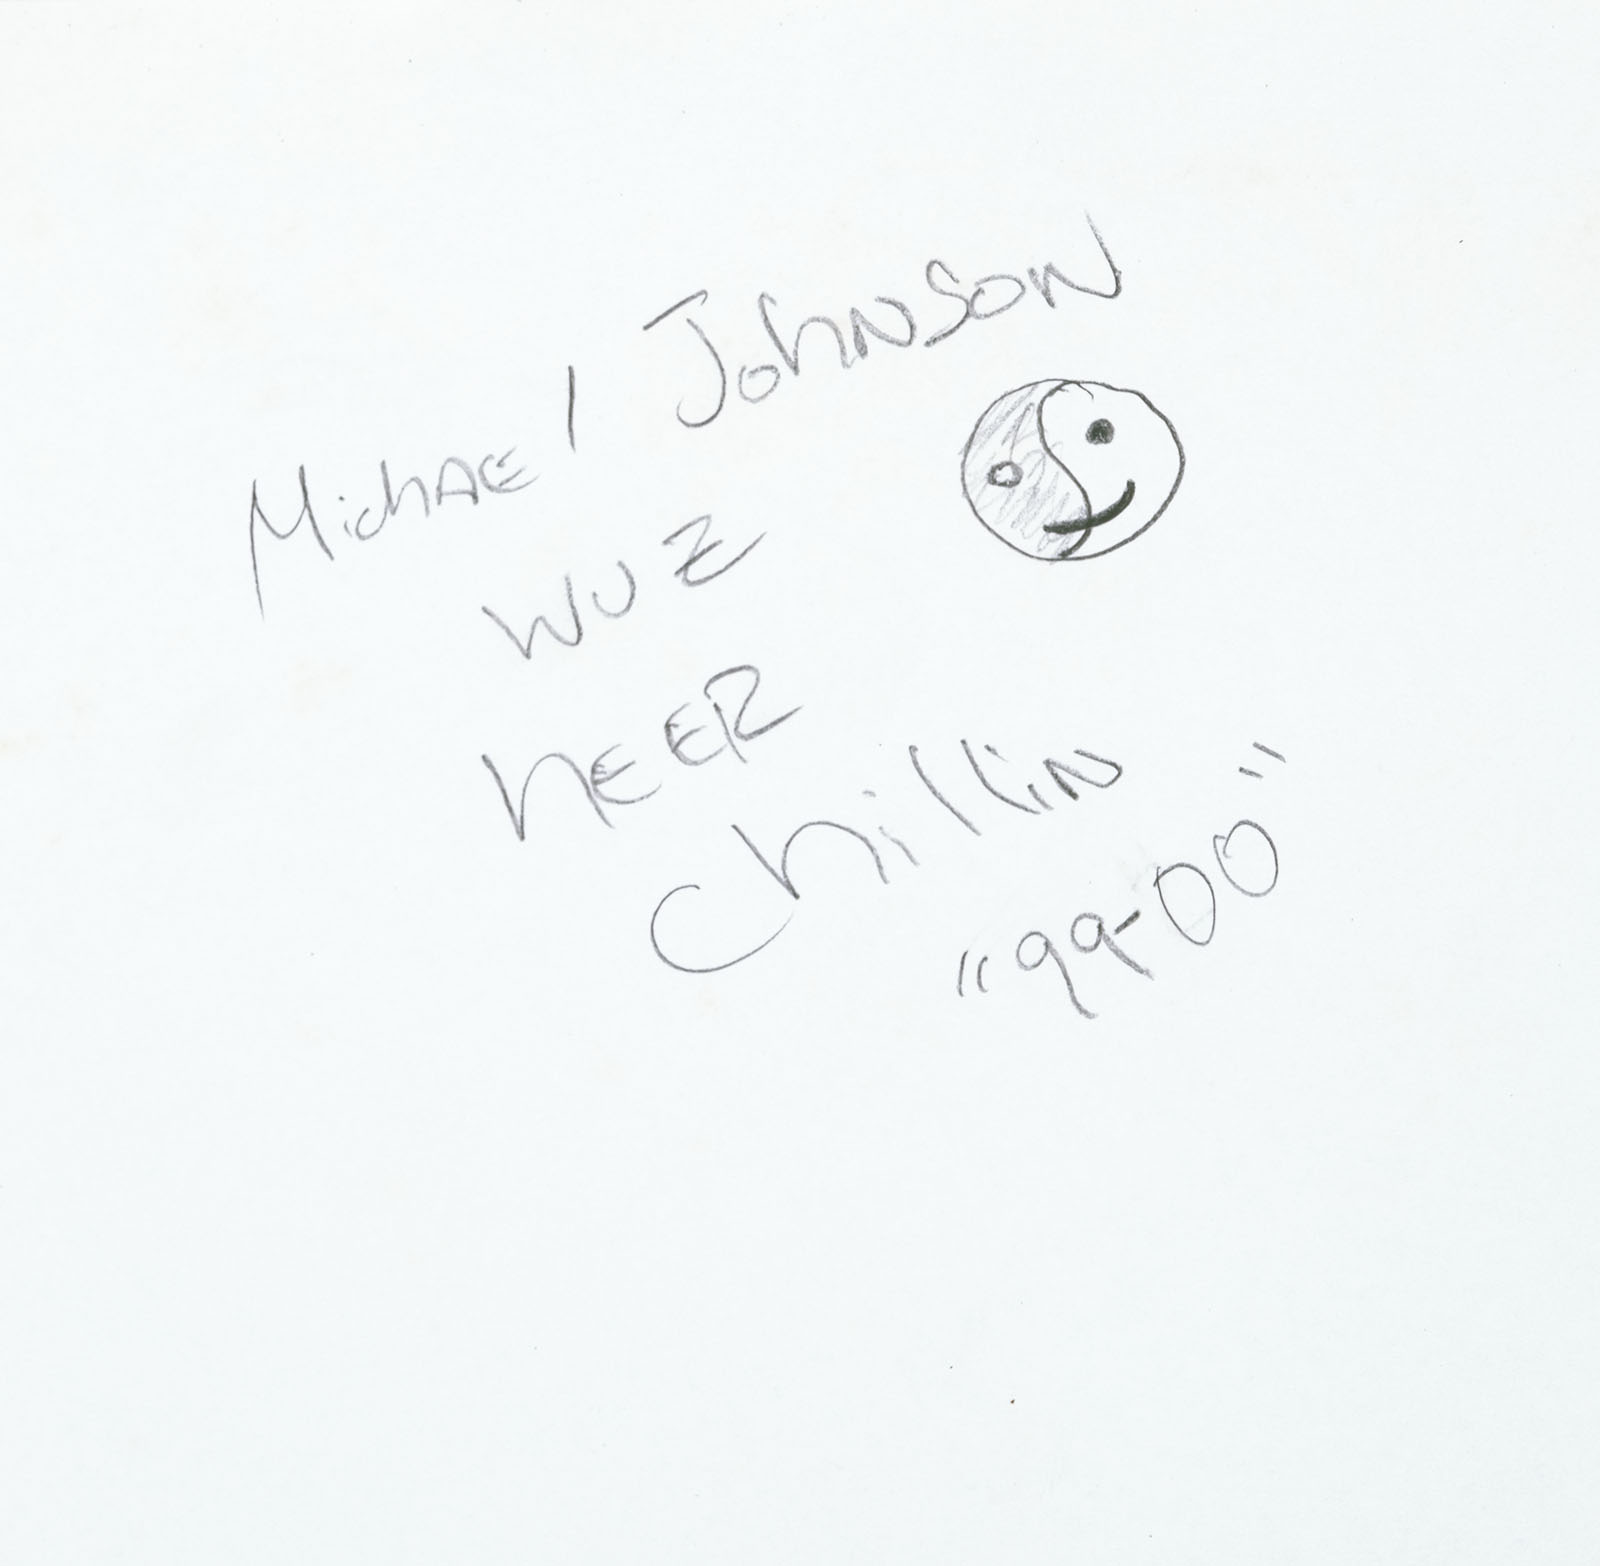 Michael Johnson
wuz
heer
chillin
"99-00"